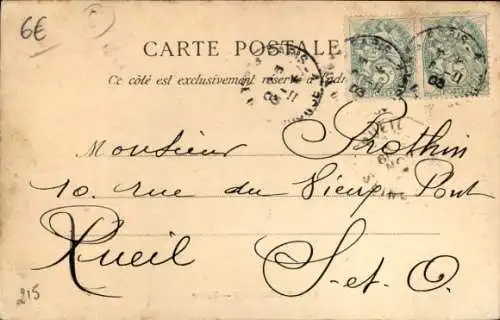 6€
CARTE POSTALE
Ce côté est exclusivement réservé à l'adr
PARIS
03
PARIS
03
03
Monsieur Prothin
10 rue du Vieux Pont
Rueil S-et-O.
215